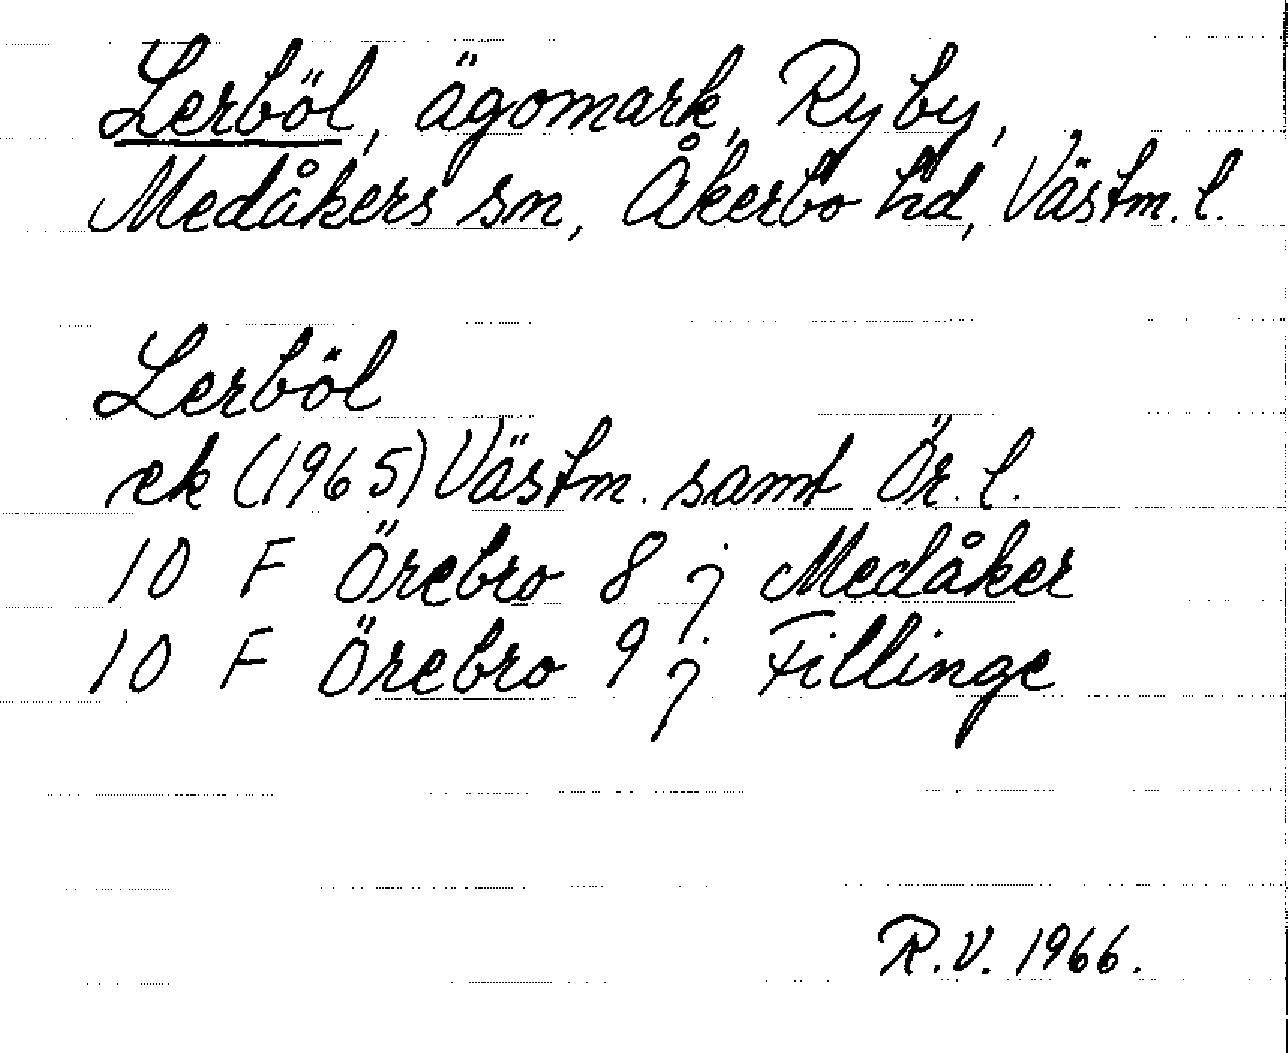 Lerböl, ägomark, Ryby,
Medåkers sn, Åkerbo hd, Västm. l.
Lerböl
ek (1965) Västm. samt Ör. l.
10 F Örebro 8 j Medåker
10 F Örebro 9 j Fillinge
R.V. 1966.